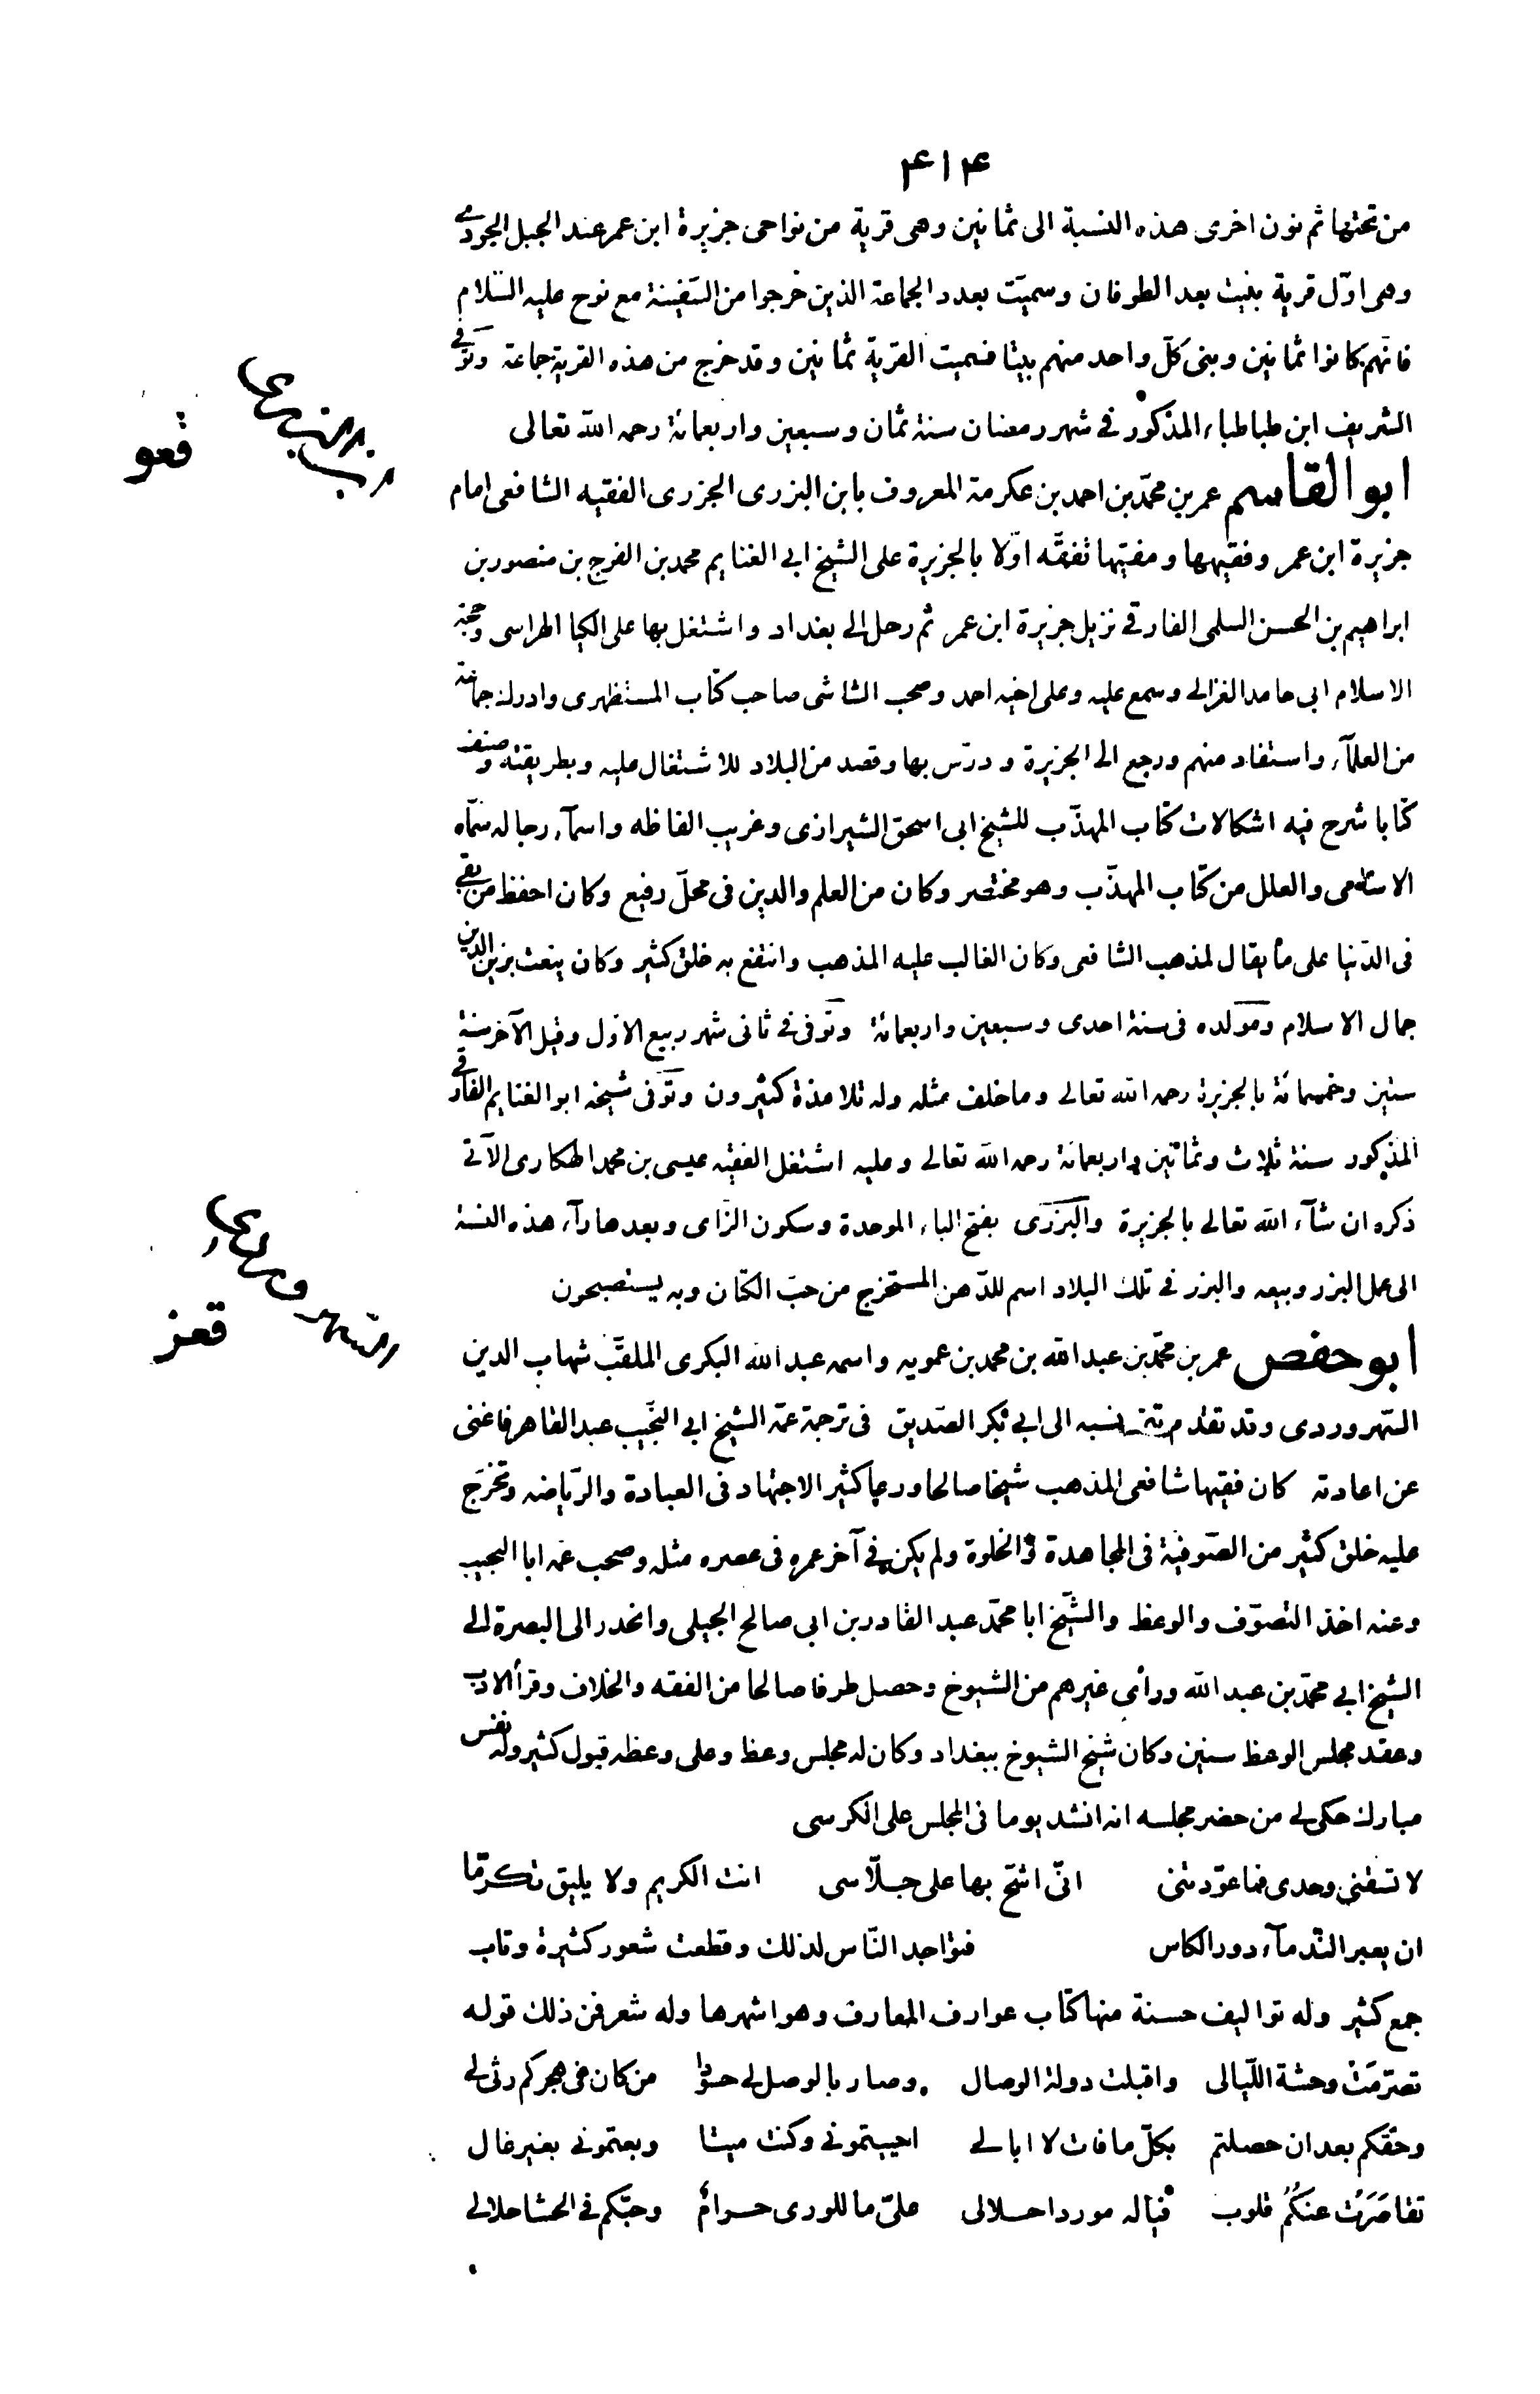 ۴۱۴
من تحتها ثم نون اخرى هذه النسبة الى ثمانين وهى قرية من نواحى جزيرة ابن عمر عند الجبل الجودى
وهى اوّل قرية بنيت بعد الطوفان وسميّت بعدد الجماعة الذين خرجوا من السّفينة مع نوح عليه السّلام
فانّهم كانوا ثمانين وبنى كلّ واحد منهم بيتا فسميت القرية ثمانين وقد خرج من هذه القرية جماعة وتوفى
الشريف ابن طباطباء المذكور فى شهر رمضان سنة ثمان وسبعين واربعمائة رحمه الله تعالى
ابو القاسم عمر بن محمّد بن احمد بن عكرمة المعروف بابن البزرى الجزرى الفقيه الشافعى امام
جزيرة ابن عمر وفقيهها ومفتيها تفقّه اوّلا بالجزيرة على الشيخ ابى الغنايم محمد بن الفرج بن منصور بن
ابراهيم بن الحسن السلمى الفارقى نزيل جزيرة ابن عمر ثم رحل الى بغداد واشتغل بها على الكيا الهراسى وحجة
الاسلام ابى حامد الغزالى وسمع عليه وعلى اخيه احمد وصحب الشاشى صاحب كتاب المستظهرى وادرك جماعة
من العلمآء واستفاد منهم ورجع الى الجزيرة ودرّس بها وقصد من البلاد للاشتغال عليه وبطريقته وصنف
كتابا شرح فيه اشكالات كتاب المهذّب للشيخ ابى اسحق الشيرازى وغريب الفاظه واسمآء رجاله سمّاه
الاسامى والعلل من كتاب المهذّب وهو مختصر وكان من العلم والدين فى محلّ رفيع وكان احفظ من بقى
فى الدّنيا على ما يقال لمذهب الشافعى وكان الغالب عليه المذهب وانتفع به خلق كثير وكان ينعت بزين الدين
جمال الاسلام ومولده فى سنة احدى وسبعين واربعمائة وتوفى فى ثانى شهر ربيع الاوّل وقيل الآخر سنة
ستين وخمسمائة بالجزيرة رحمه الله تعالى وما خلف مثله وله تلامذة كثيرون وتوفى شيخه ابو الغنايم الفارقى
المذكور سنة ثلاث وثمانين واربعمائة رحمه الله تعالى وعليه اشتغل الفقيه عيسى بن محمد الهكارى الآتى
ذكره ان شآء الله تعالى بالجزيرة والبزرى بفتح الباء الموحدة وسكون الزّاى وبعدها رآء هذه النسبة
الى عمل البزر وبيعه والبزر فى تلك البلاد اسم للدّهن المستخرج من حبّ الكتّان وبه يستصبحون
ابو حفص عمر بن محمّد بن عبد الله بن محمد بن عمويه واسمه عبد الله البكرى الملقّب شهاب الدين
السّهروردى وقد تقدم تتمة نسبه الى ابى بكر الصّديق فى ترجمة عمّه الشيخ ابى النجّيب عبد القاهر فاغنى
عن اعادته كان فقيها شافعى المذهب شيخا صالحا ورعا كثير الاجتهاد فى العبادة والرّياضه وتخرّج
عليه خلق كثير من الصّوفيّة فى المجاهدة والخلوة ولم يكن فى آخر عمره فى عصره مثله وصحب عمّه ابا النجيب
وعنه اخذ التصوّف والوعظ والشّيخ ابا محمّد عبد القادر بن ابى صالح الجيلى وانحدر الى البصرة الى
الشيخ ابى محمّد بن عبد الله ورأى غيرهم من الشيوخ وحصل طرفا صالحا من الفقه والخلاف وقرأ الادب
وعقد مجلس الوعظ سنين وكان شيخ الشيوخ ببغداد وكان له مجلس وعظ وعلى وعظه قبول كثير وله نفس
مبارك حكى لى من حضر مجلسه انه انشد يوما فى المجلس على الكرسى
لا تسقنى وحدى فما عوّدتنى انّى اشحّ بها على جلّاسى انت الكريم ولا يليق تكرّما
ان يعبر النّدمآء دور الكاس فتواجد النّاس لذلك وقطعت شعور كثيرة وتاب
جمع كثير وله تواليف حسنة منها كتاب عوارف المعارف وهو اشهرها وله شعر فمن ذلك قوله
تصرّمت وحشة اللّيالى واقبلت دولة الوصال وصار بالوصل لى حسودا من كان فى هجركم رثى لى
وحقّكم بعد ان حصلتم بكلّ ما فات لا ابالى احييتمونى وكنت ميتا وبعتمونى بغير غال
تقاصرت عنكم قلوب فياله موردا حلالى علىّ ما للورى حرام وحبّكم فى الحشا حلالى
ابن البزرى
قعو
السهروردى
قعز